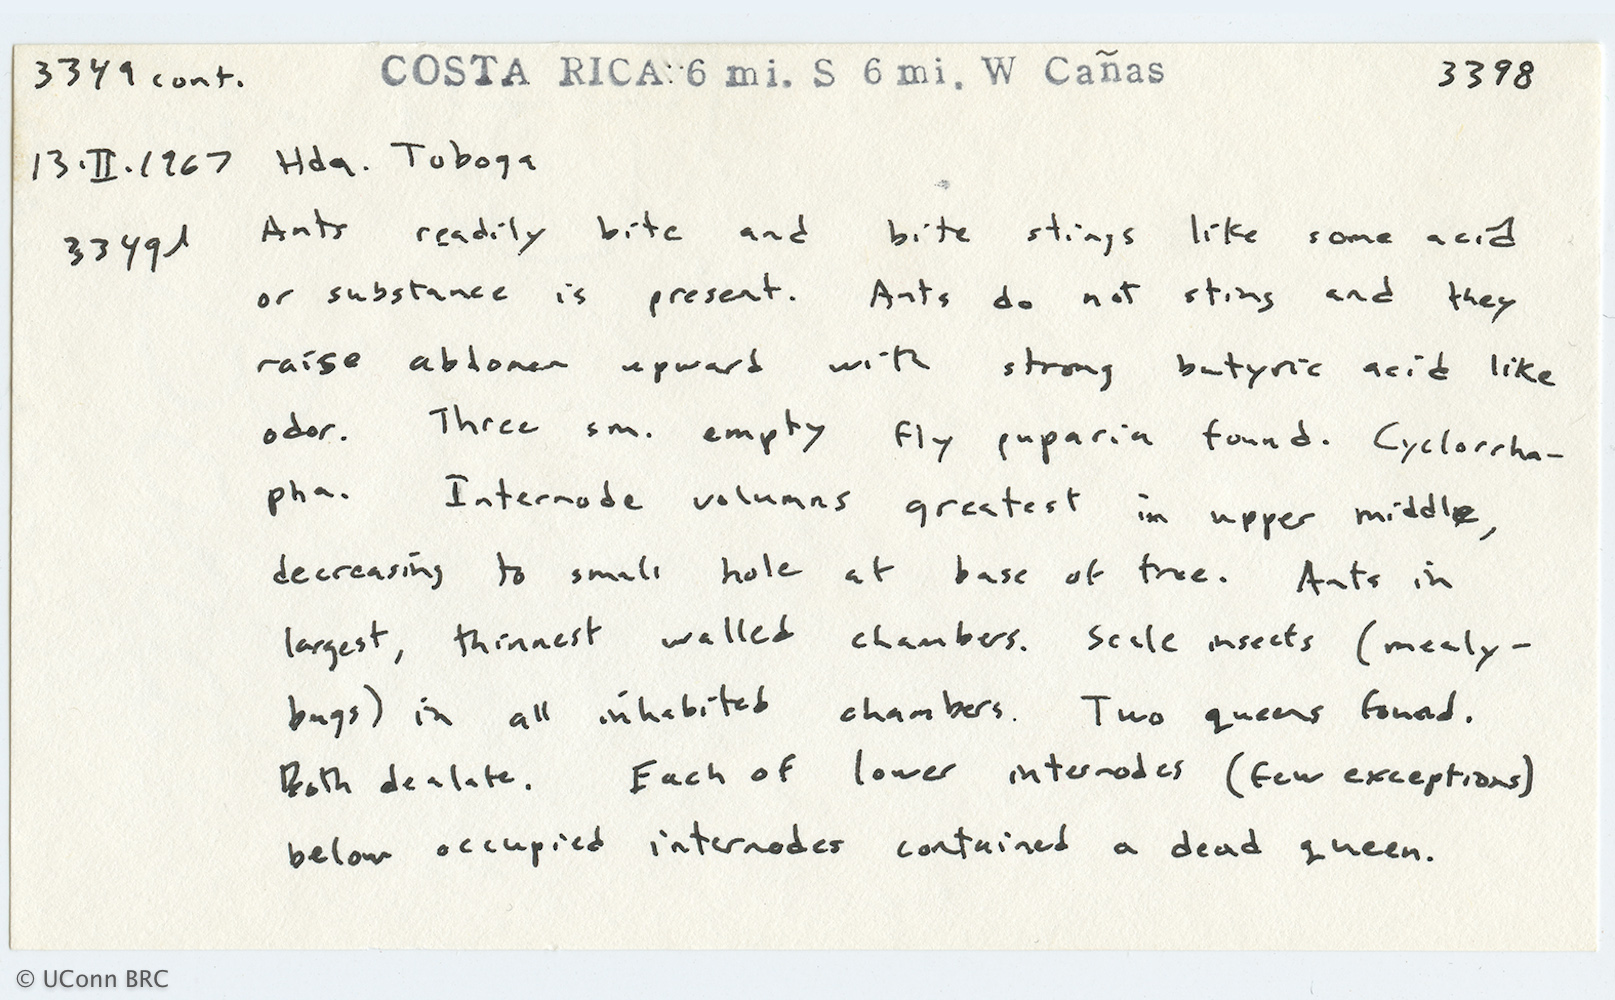 3349 cont. COSTA RICA: 6 mi. S 6 mi. W Cañas 3398
13.II.1967 Hda. Taboga
3349l Ants readily bite and bite stings like some acid
or substance is present. Ants do not sting and they
raise abdomen upward with strong butyric acid like
odor. Three sm. empty fly puparia found. Cyclorrha-
pha. Internode volumns greatest in upper middle,
decreasing to small hole at base of tree. Ants in
largest, thinnest walled chambers. Scale insects (mealy-
bugs) in all inhabited chambers. Two queens found.
Both dealate. Each of lower internodes (few exceptions)
below occupied internodes contained a dead queen.
© UConn BRC